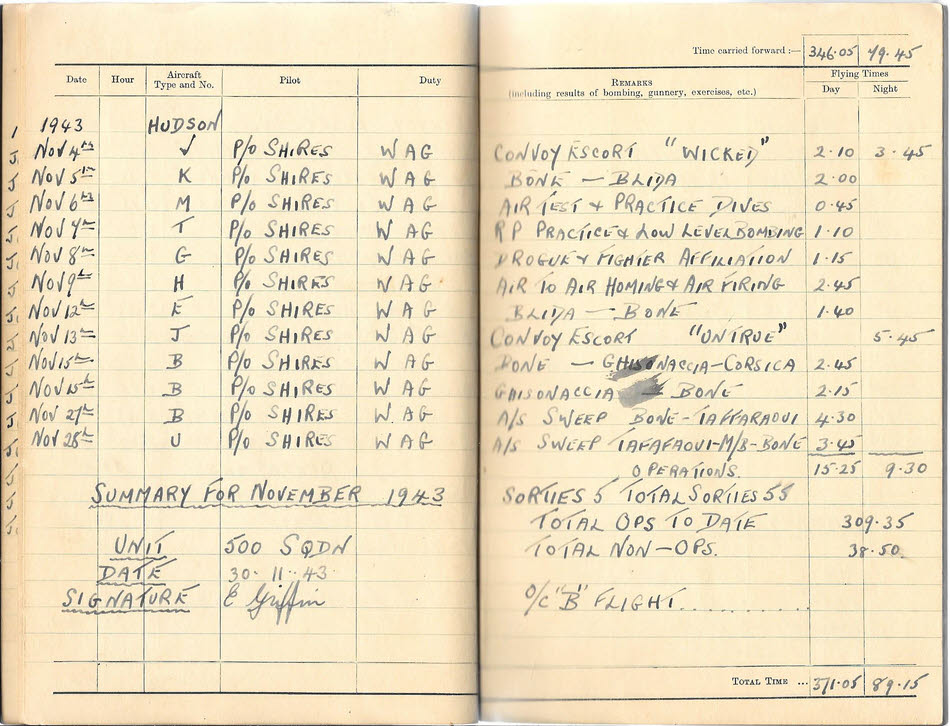 Time carried forward :— 346.05 79.45
Date Hour Aircraft Type and No. Pilot Duty REMARKS (including results of bombing, gunnery, exercises, etc.) Flying Times Day Night
1943 HUDSON
Nov 4th J P/O SHIRES WAG CONVOY ESCORT "WICKED" 2.10 3.45
Nov 5th K P/O SHIRES WAG BONE — BLIDA 2.00
Nov 6th M P/O SHIRES WAG AIR TEST & PRACTICE DIVES 0.45
Nov 7th T P/O SHIRES WAG RP PRACTICE & LOW LEVEL BOMBING 1.10
Nov 8th G P/O SHIRES WAG DROGUE & FIGHTER AFFILIATION 1.15
Nov 9th H P/O SHIRES WAG AIR TO AIR HOMING & AIR FIRING 2.45
Nov 12th E P/O SHIRES WAG BLIDA — BONE 1.40
Nov 13th J P/O SHIRES WAG CONVOY ESCORT "UNTRUE" 5.45
Nov 15th B P/O SHIRES WAG BONE — GHISONACCIA-CORSICA 2.45
Nov 15th B P/O SHIRES WAG GHISONACCIA — BONE 2.15
Nov 27th B P/O SHIRES W.AG A/S SWEEP BONE-TAFFARAOUI 4.30
Nov 28th U P/O SHIRES WAG A/S SWEEP TAFAFAOUI-M/B-BONE 3.45
OPERATIONS. 15.25 9.30
SUMMARY FOR NOVEMBER 1943 SORTIES 5 TOTAL SORTIES 55
TOTAL OPS TO DATE 309.35
UNIT 500 SQDN TOTAL NON-OPS. 38.50.
DATE 30.11.43.
SIGNATURE E Griffin O/C "B" FLIGHT..........
TOTAL TIME ... 371.05 89.15